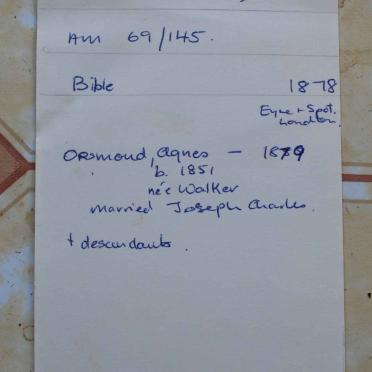 Am 69/145.
Bible 1878
Eyre + Spot.
London.
Ormond, Agnes — 1879
b. 1851
née Walker
married Joseph Charles.
+ descendants.